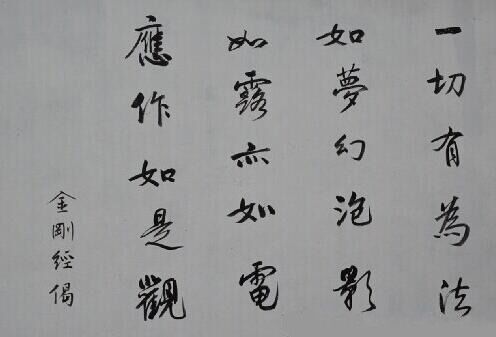 一切有為法
如夢幻泡影
如露亦如電
應作如是觀
金剛經偈